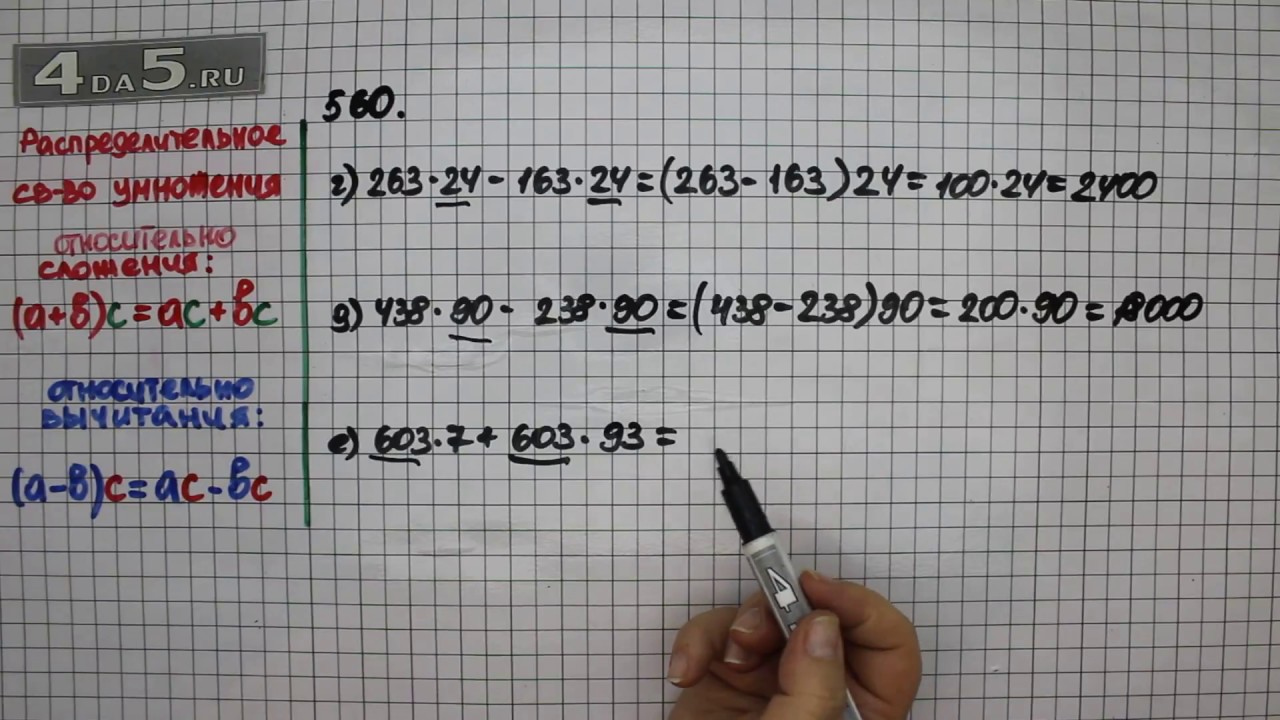 4DA5.RU
Распределительное
св-во умножения
относительно
сложения:
(а+в)с=ас+вс
относительно
вычитания:
(а-в)с=ас-вс
560.
г) 263·24 - 163·24=(263-163)24=100·24=2400
д) 438·90 - 238·90=(438-238)90=200·90=
е) 603·7+ 603·93=
4